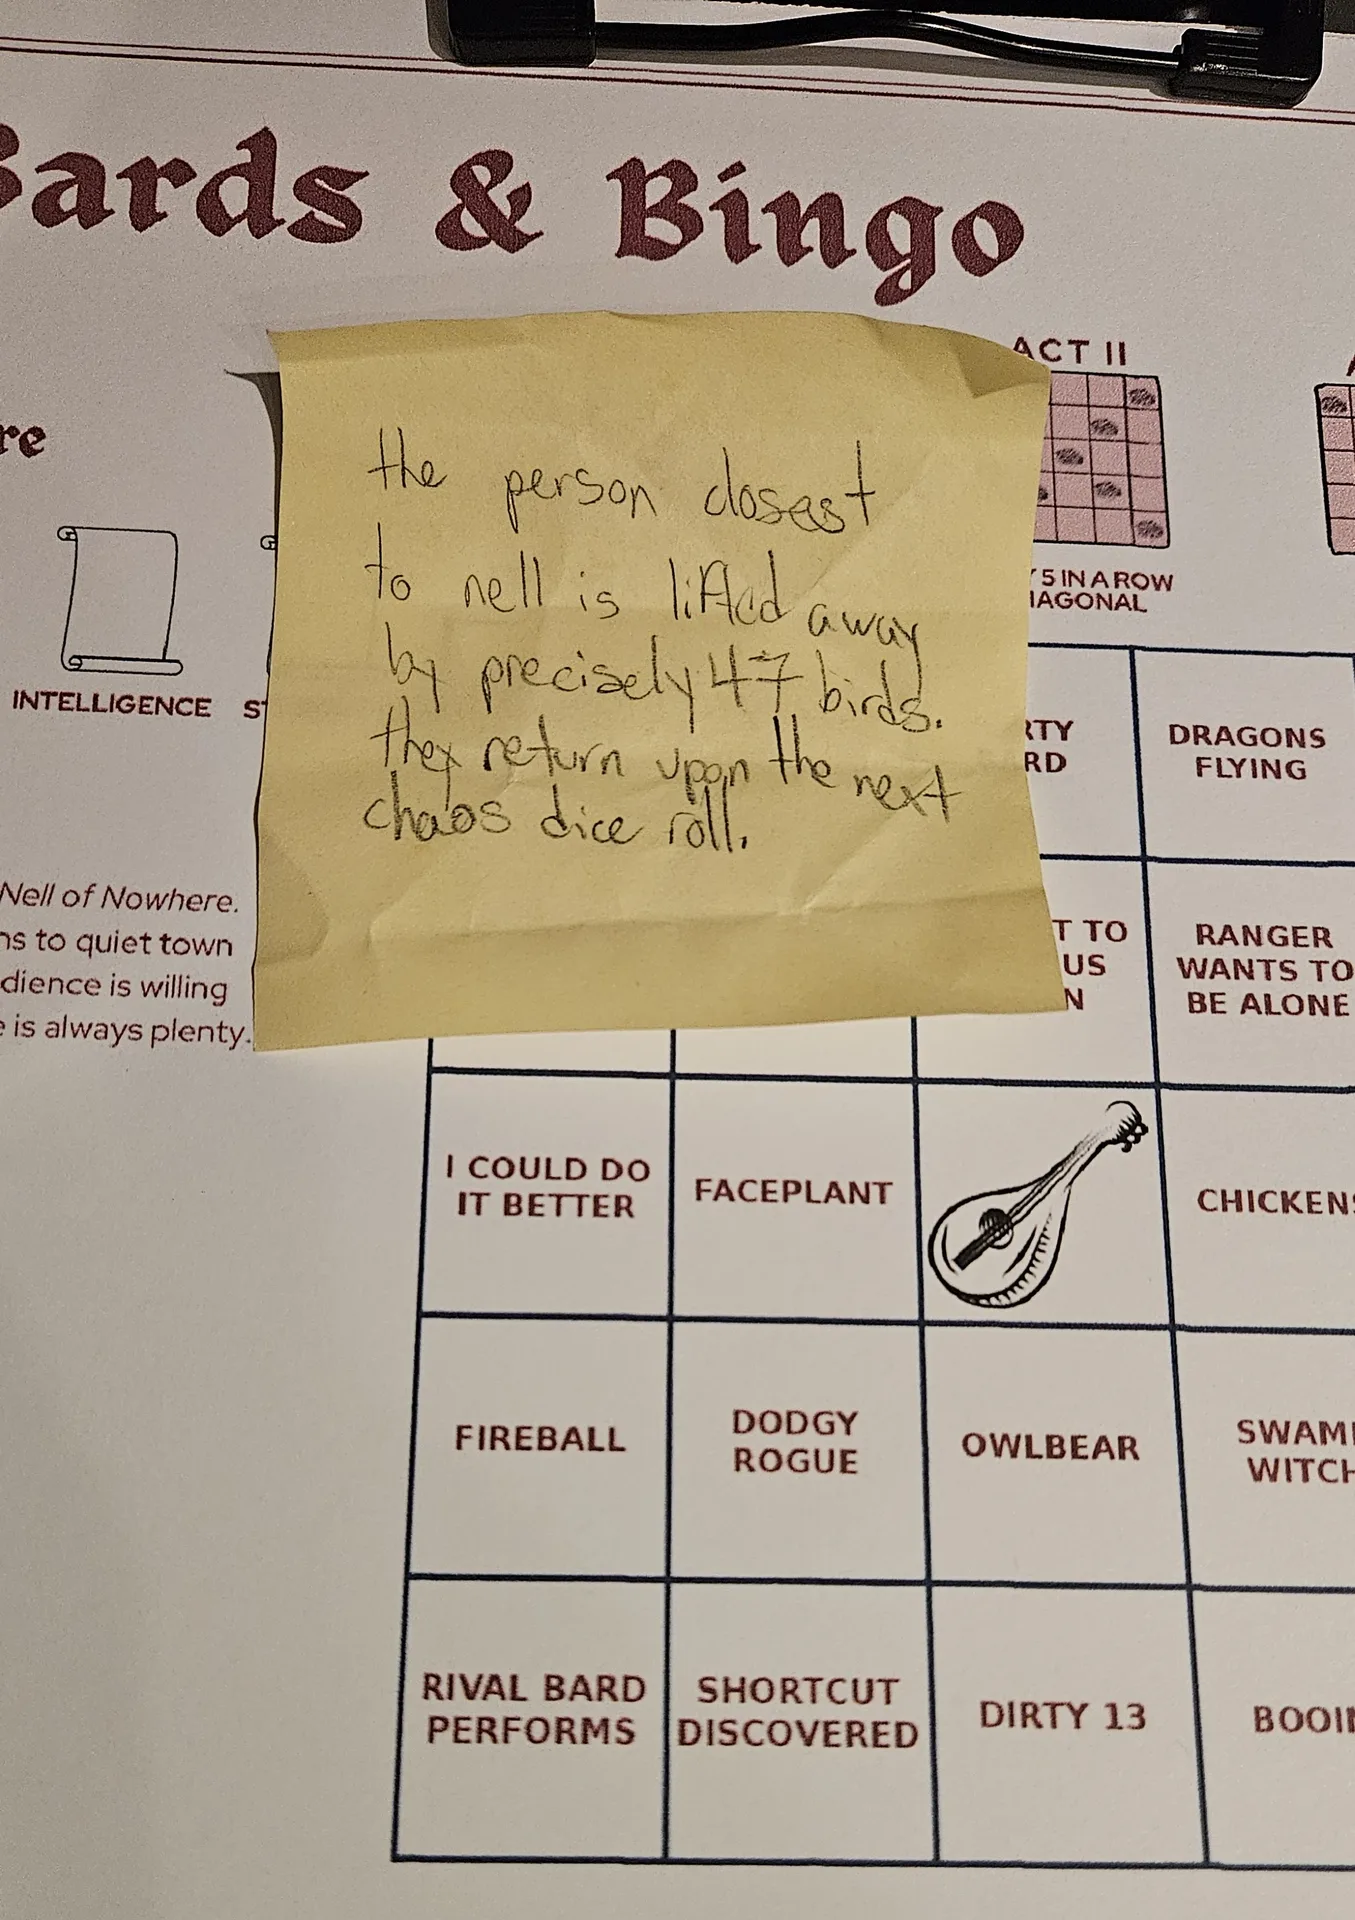 Bards & Bingo
ACT II
5 IN A ROW
DIAGONAL
INTELLIGENCE
the person closest
to nell is lifted away
by precisely 47 birds.
they return upon the next
chaos dice roll.
Nell of Nowhere.
to quiet town
is willing
is always plenty.
DRAGONS
FLYING
TO
US
RANGER
WANTS TO
BE ALONE
I COULD DO
IT BETTER
FACEPLANT
CHICKENS
FIREBALL
DODGY
ROGUE
OWLBEAR
SWAMP
WITCH
RIVAL BARD
PERFORMS
SHORTCUT
DISCOVERED
DIRTY 13